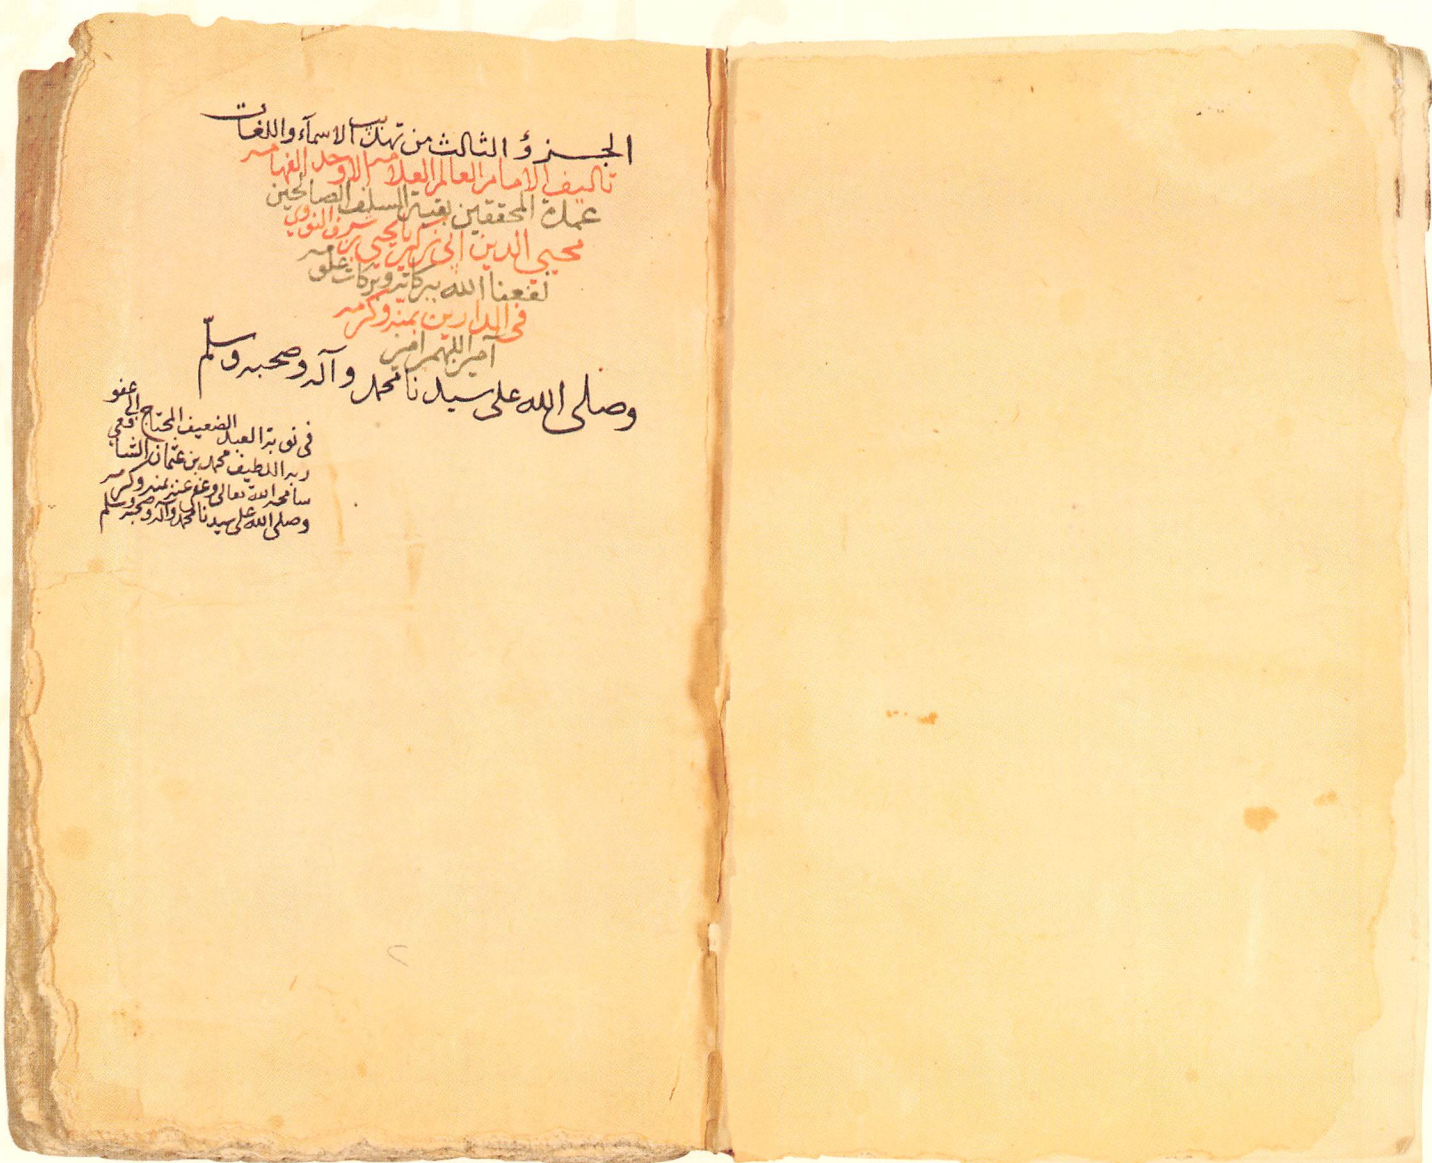 الجزؤ الثالث من تهذيب الاسمآء واللغات
تاليف الامام العالم العلامه الاوحد الفهامه
عمدة المحققين بقية السلف الصالحين
محيي الدين ابى زكريا يحيى بن شرف النووي
نفعنا الله ببركاته وبركات علومه
فى الدارين بمنه وكرمه
آمين اللهم امين
وصلى الله على سيدنا محمد وآله وصحبه وسلم
فى نوبة العبد الضعيف المحتاج إلى عفو
ربه اللطيف محمد بن عثمان الشافعي
سامحه الله تعالى وعفى عنه بمنه وكرمه
وصلى الله على سيدنا محمد وآله وصحبه وسلم